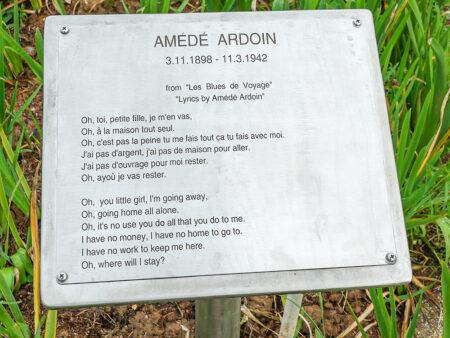 AMÉDÉ ARDOIN
3.11.1898 - 11.3.1942
from "Les Blues de Voyage"
"Lyrics by Amédé Ardoin"
Oh, toi, petite fille, je m'en vas,
Oh, à la maison tout seul.
Oh, c'est pas la peine tu me fais tout ça tu fais avec moi.
J'ai pas d'argent, j'ai pas de maison pour aller.
J'ai pas d'ouvrage pour moi rester.
Oh, ayoù je vas rester.
Oh, you little girl, I'm going away,
Oh, going home all alone.
Oh, it's no use you do all that you do to me.
I have no money, I have no home to go to.
I have no work to keep me here.
Oh, where will I stay?